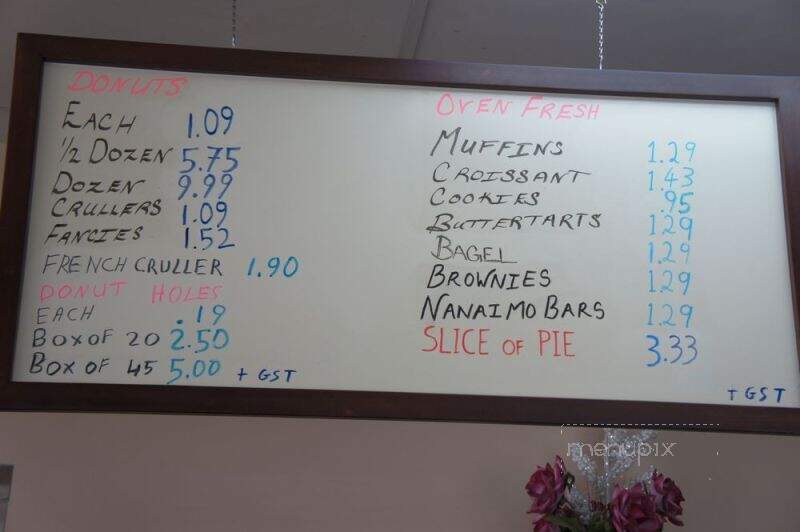 DONUTS
EACH 1.09
1/2 DOZEN 5.75
DOZEN 9.99
CRULLERS 1.09
FANCIES 1.52
FRENCH CRULLER 1.90
DONUT HOLES
EACH .19
BOX OF 20 2.50
BOX OF 45 5.00 + GST
OVEN FRESH
MUFFINS 1.29
CROISSANT 1.43
COOKIES .95
BUTTERTARTS 1.29
BAGEL 1.29
BROWNIES 1.29
NANAIMO BARS 1.29
SLICE OF PIE 3.33
+ GST
menupix